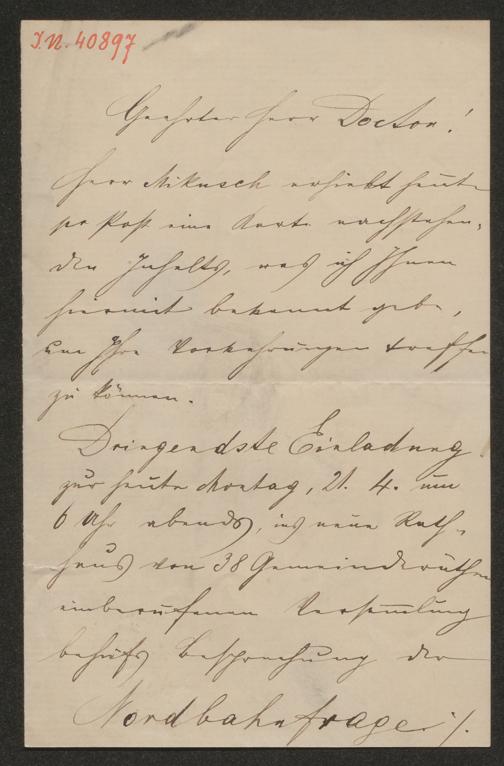 I.N. 40897
Geehrter Herr Doctor!
Herr Mikusch erhielt heute
per Post eine Karte nachstehen-
den Inhalts, was ich Ihnen
hiermit bekannt gebe,
um Ihre Vorkehrungen treffen
zu können.
Dringendste Einladung
zur heute Montag, 21. 4. um
6 Uhr abends, ins neue Rath-
haus von 38 Gemeinderäthen
einberufenen Versammlung
behufs Besprechung der
Nordbahnfrage ./.